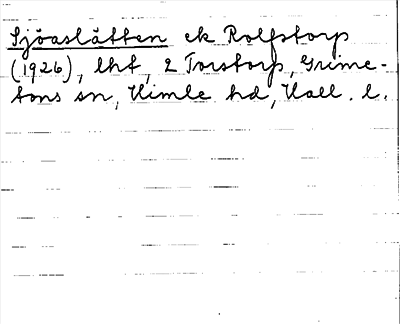 Sjöaslätten ek Rolfstorp
(1926), lht, 2 Torstorp, Grime-
tons sn, Himle hd, Hall. l.